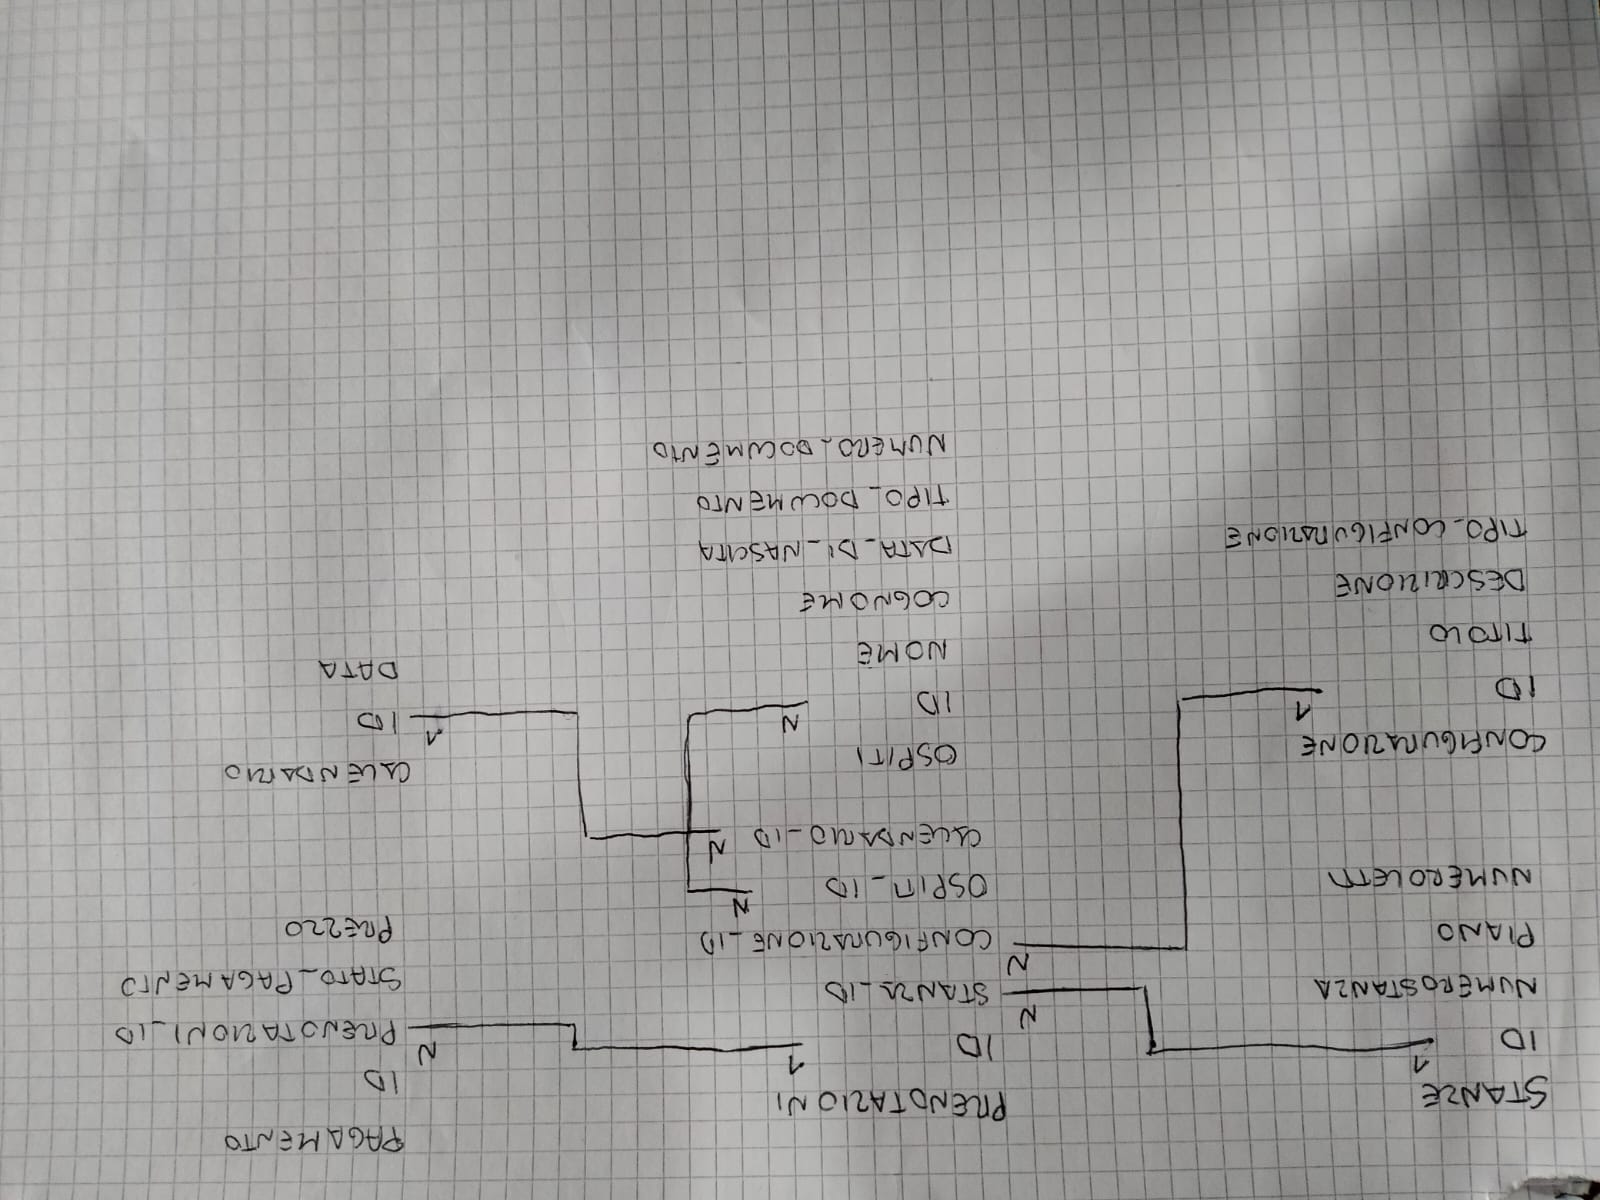 STANZE
ID 1
NUMEROSTANZA
PIANO
NUMEROLETTI
CONFIGURAZIONE
ID 1
TITOLO
DESCRIZIONE
TIPO_CONFIGURAZIONE
PRENOTAZIONI
ID 1
N STANZA_ID
N CONFIGURAZIONE_ID
OSPITI_ID N
CALENDARIO_ID N
OSPITI
ID N
NOME
COGNOME
DATA_DI_NASCITA
TIPO_DOCUMENTO
NUMERO_DOCUMENTO
PAGAMENTO
ID
N PRENOTAZIONI_ID
STATO_PAGAMENTO
PREZZO
CALENDARIO
1 ID
DATA